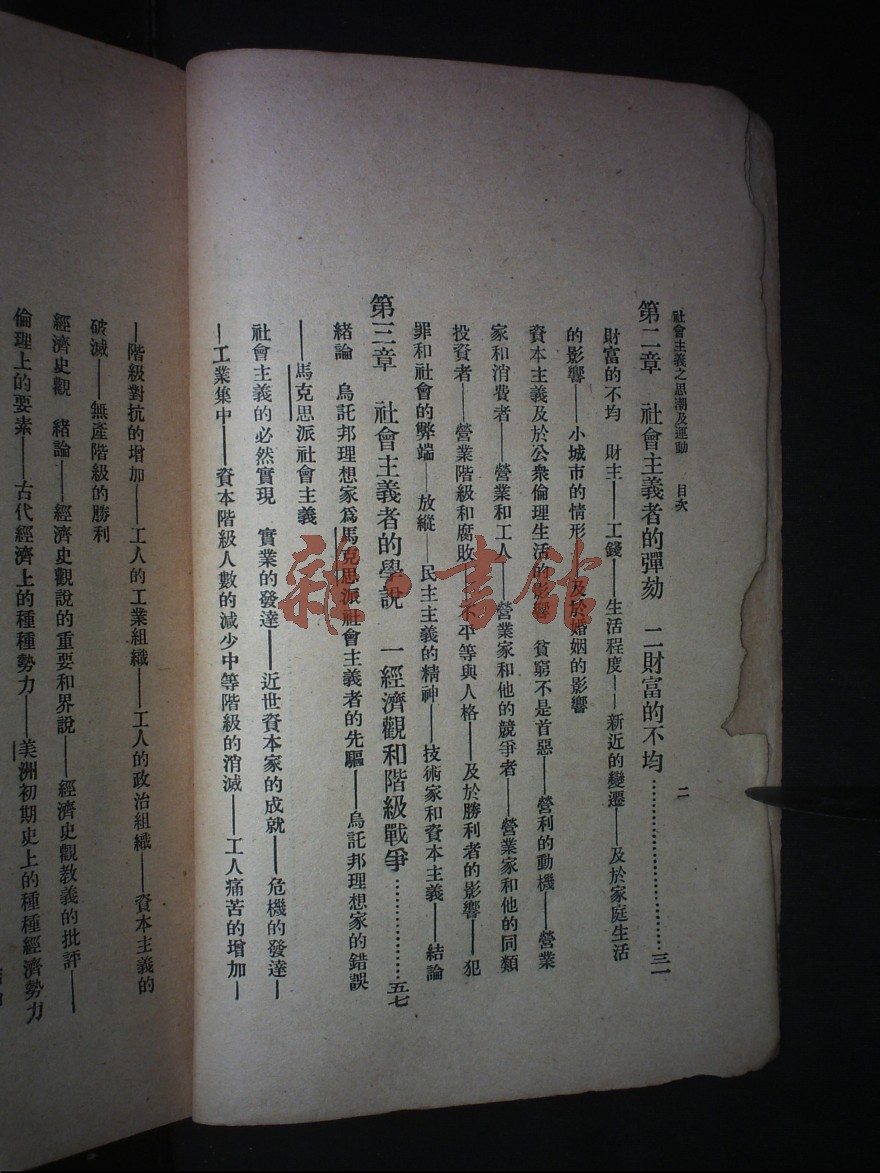 社會主義之思潮及運動　目次　二
第二章　社會主義者的彈劾　二財富的不均……………………三一
財富的不均　財主——工錢——生活程度——新近的變遷——及於家庭生活
的影響——小城市的情形　及於婚姻的影響
資本主義及於公衆倫理生活的影響　貧窮不是首惡——營利的動機——營業
家和消費者——營業和工人——營業家和他的競爭者——營業家和他的同類
投資者——營業階級和腐敗　不平等與人格——及於勝利者的影響——犯
罪和社會的弊端——放縱——民主主義的精神——技術家和資本主義——結論
第三章　社會主義者的學說　一經濟觀和階級戰爭………………五七
緒論　烏託邦理想家爲馬克思派社會主義者的先驅——烏託邦理想家的錯誤
——馬克思派社會主義
社會主義的必然實現　實業的發達——近世資本家的成就——危機的發達—
—工業集中——資本階級人數的減少中等階級的消滅——工人痛苦的增加—
—階級對抗的增加——工人的工業組織——工人的政治組織——資本主義的
破滅——無產階級的勝利
經濟史觀　緒論——經濟史觀說的重要和界說——經濟史觀教義的批評——
倫理上的要素——古代經濟上的種種勢力——美洲初期史上的種種經濟勢力
雜·書館